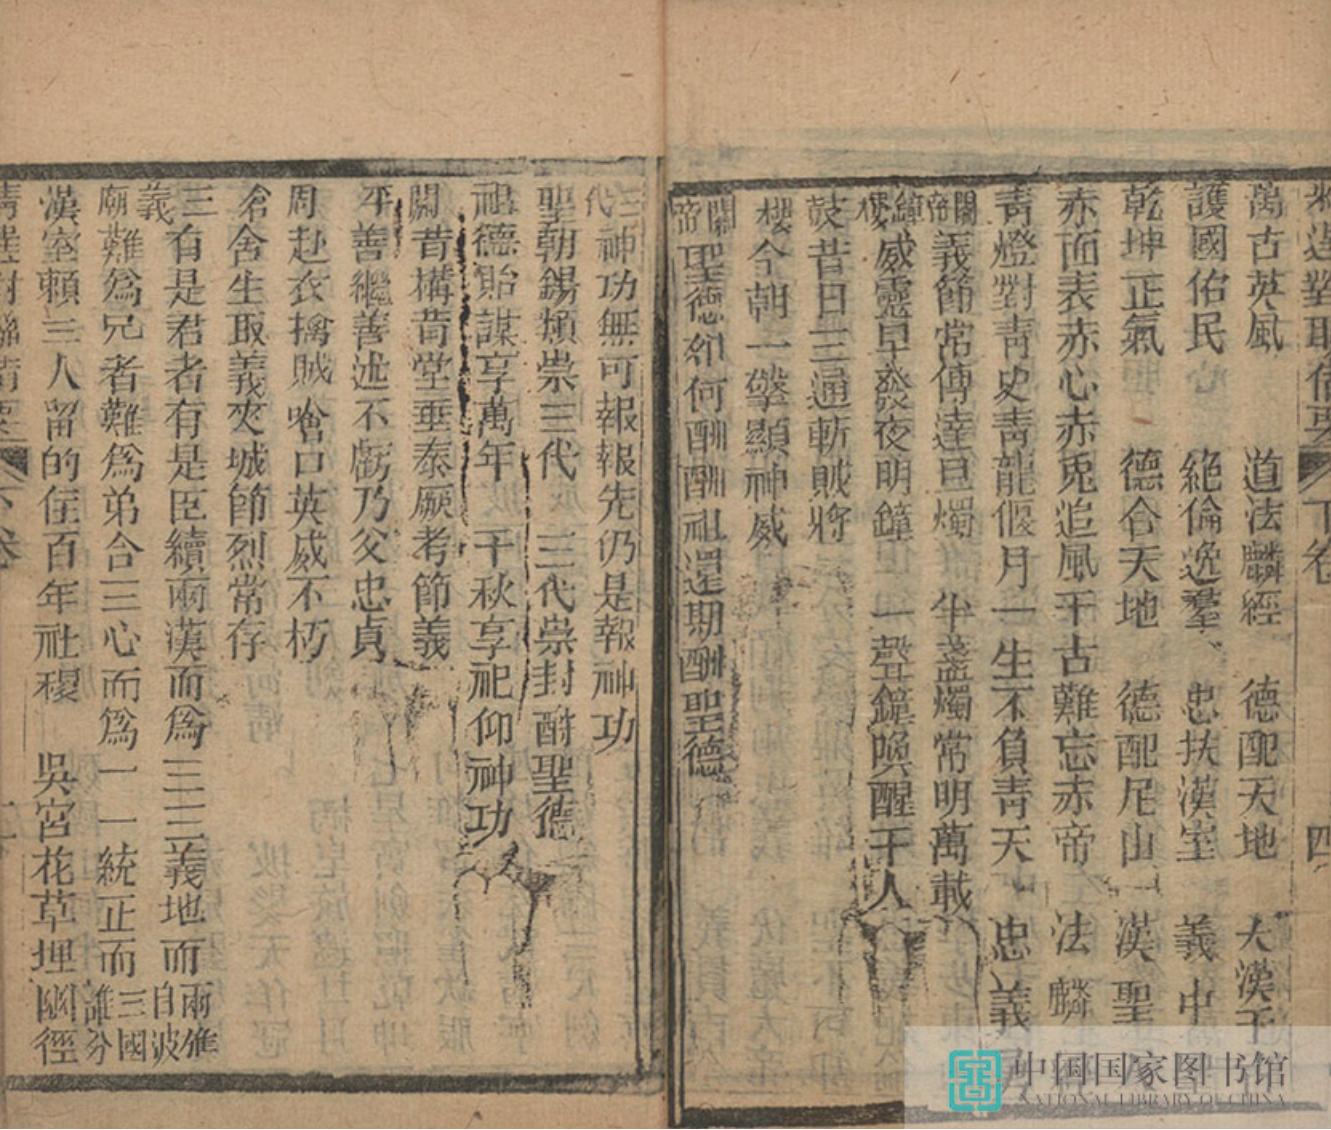 下卷
萬古英風 道法麟經 德配天地 大漢千
護國佑民 絕倫逸羣 忠扶漢室 義中
乾坤正氣 德合天地 德配尼山 漢聖
赤面表赤心赤兎追風千古難忘赤帝 法麟
靑燈對靑史靑龍偃月一生不負靑天 忠義
關帝義節常傳達旦燭 半盞燭常明萬載
鐘樓威靈早發夜明鐘 一聲鐘喚醒千人
鼓昔日三通斬賊將
樓今朝一擊顯神威
關帝聖德如何酬酬祖還期酬聖德
三代神功無可報報先仍是報神功
聖朝錫類崇三代 三代崇封酧聖德
祖德貽謀享萬年 千秋享祀仰神功
關昔構莦堂垂泰厥考節義
平善繼善述不虧乃父忠貞
周赴衣擒賊喰口英威不朽
倉舍生取義夾城節烈常存
三有是君者有是臣續兩漢而爲三三義地而兩雄自波
義廟難爲兄者難爲弟合三心而爲一一統正而三國誰分
漢室賴三人留的住百年社稷 吳宮花草埋幽徑
下卷
中国国家图书馆
NATIONAL LIBRARY OF CHINA